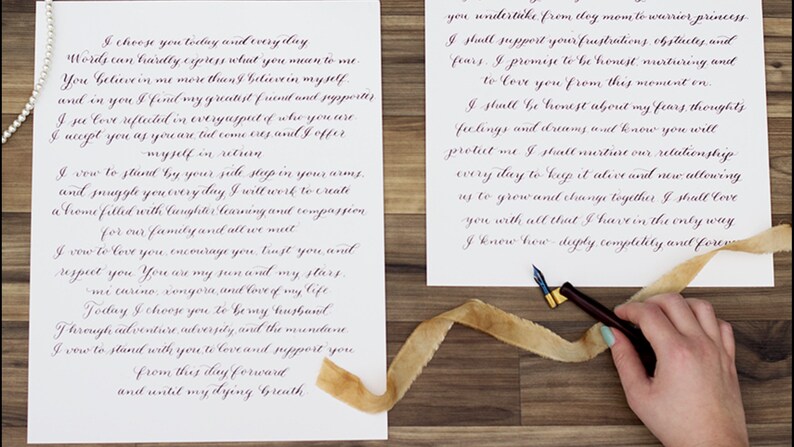 I choose you today and every day.
Words can hardly express what you mean to me.
You believe in me more than I believe in myself,
and in you I find my greatest friend and supporter.
I see love reflected in every aspect of who you are.
I accept you as you are and I offer
myself in return
I vow to stand by your side, sleep in your arms,
and snuggle you every day. I will work to create
a home filled with laughter, learning and compassion
for our family and all we meet
I vow to love you, encourage you, trust you, and
respect you. You are my sun and my stars,
mi and love of my life
Today I choose you to be my husband
Through adventure, adversity, and the mundane.
I vow to stand with you, to love and support you
from this day forward
and until my dying breath.
you undertake from dog mom to warrior princess.
I shall support your frustrations, obstacles, and
fears. I promise to be honest, nurturing, and
to love you from this moment on.
I shall be honest about my fears, thoughts,
feelings and dreams and know you will
protect me. I shall nurture our relationship
every day to keep it alive and new, allowing
us to grow and change together. I shall love
you with all that I have in the only way
I know how - deeply, completely and forever